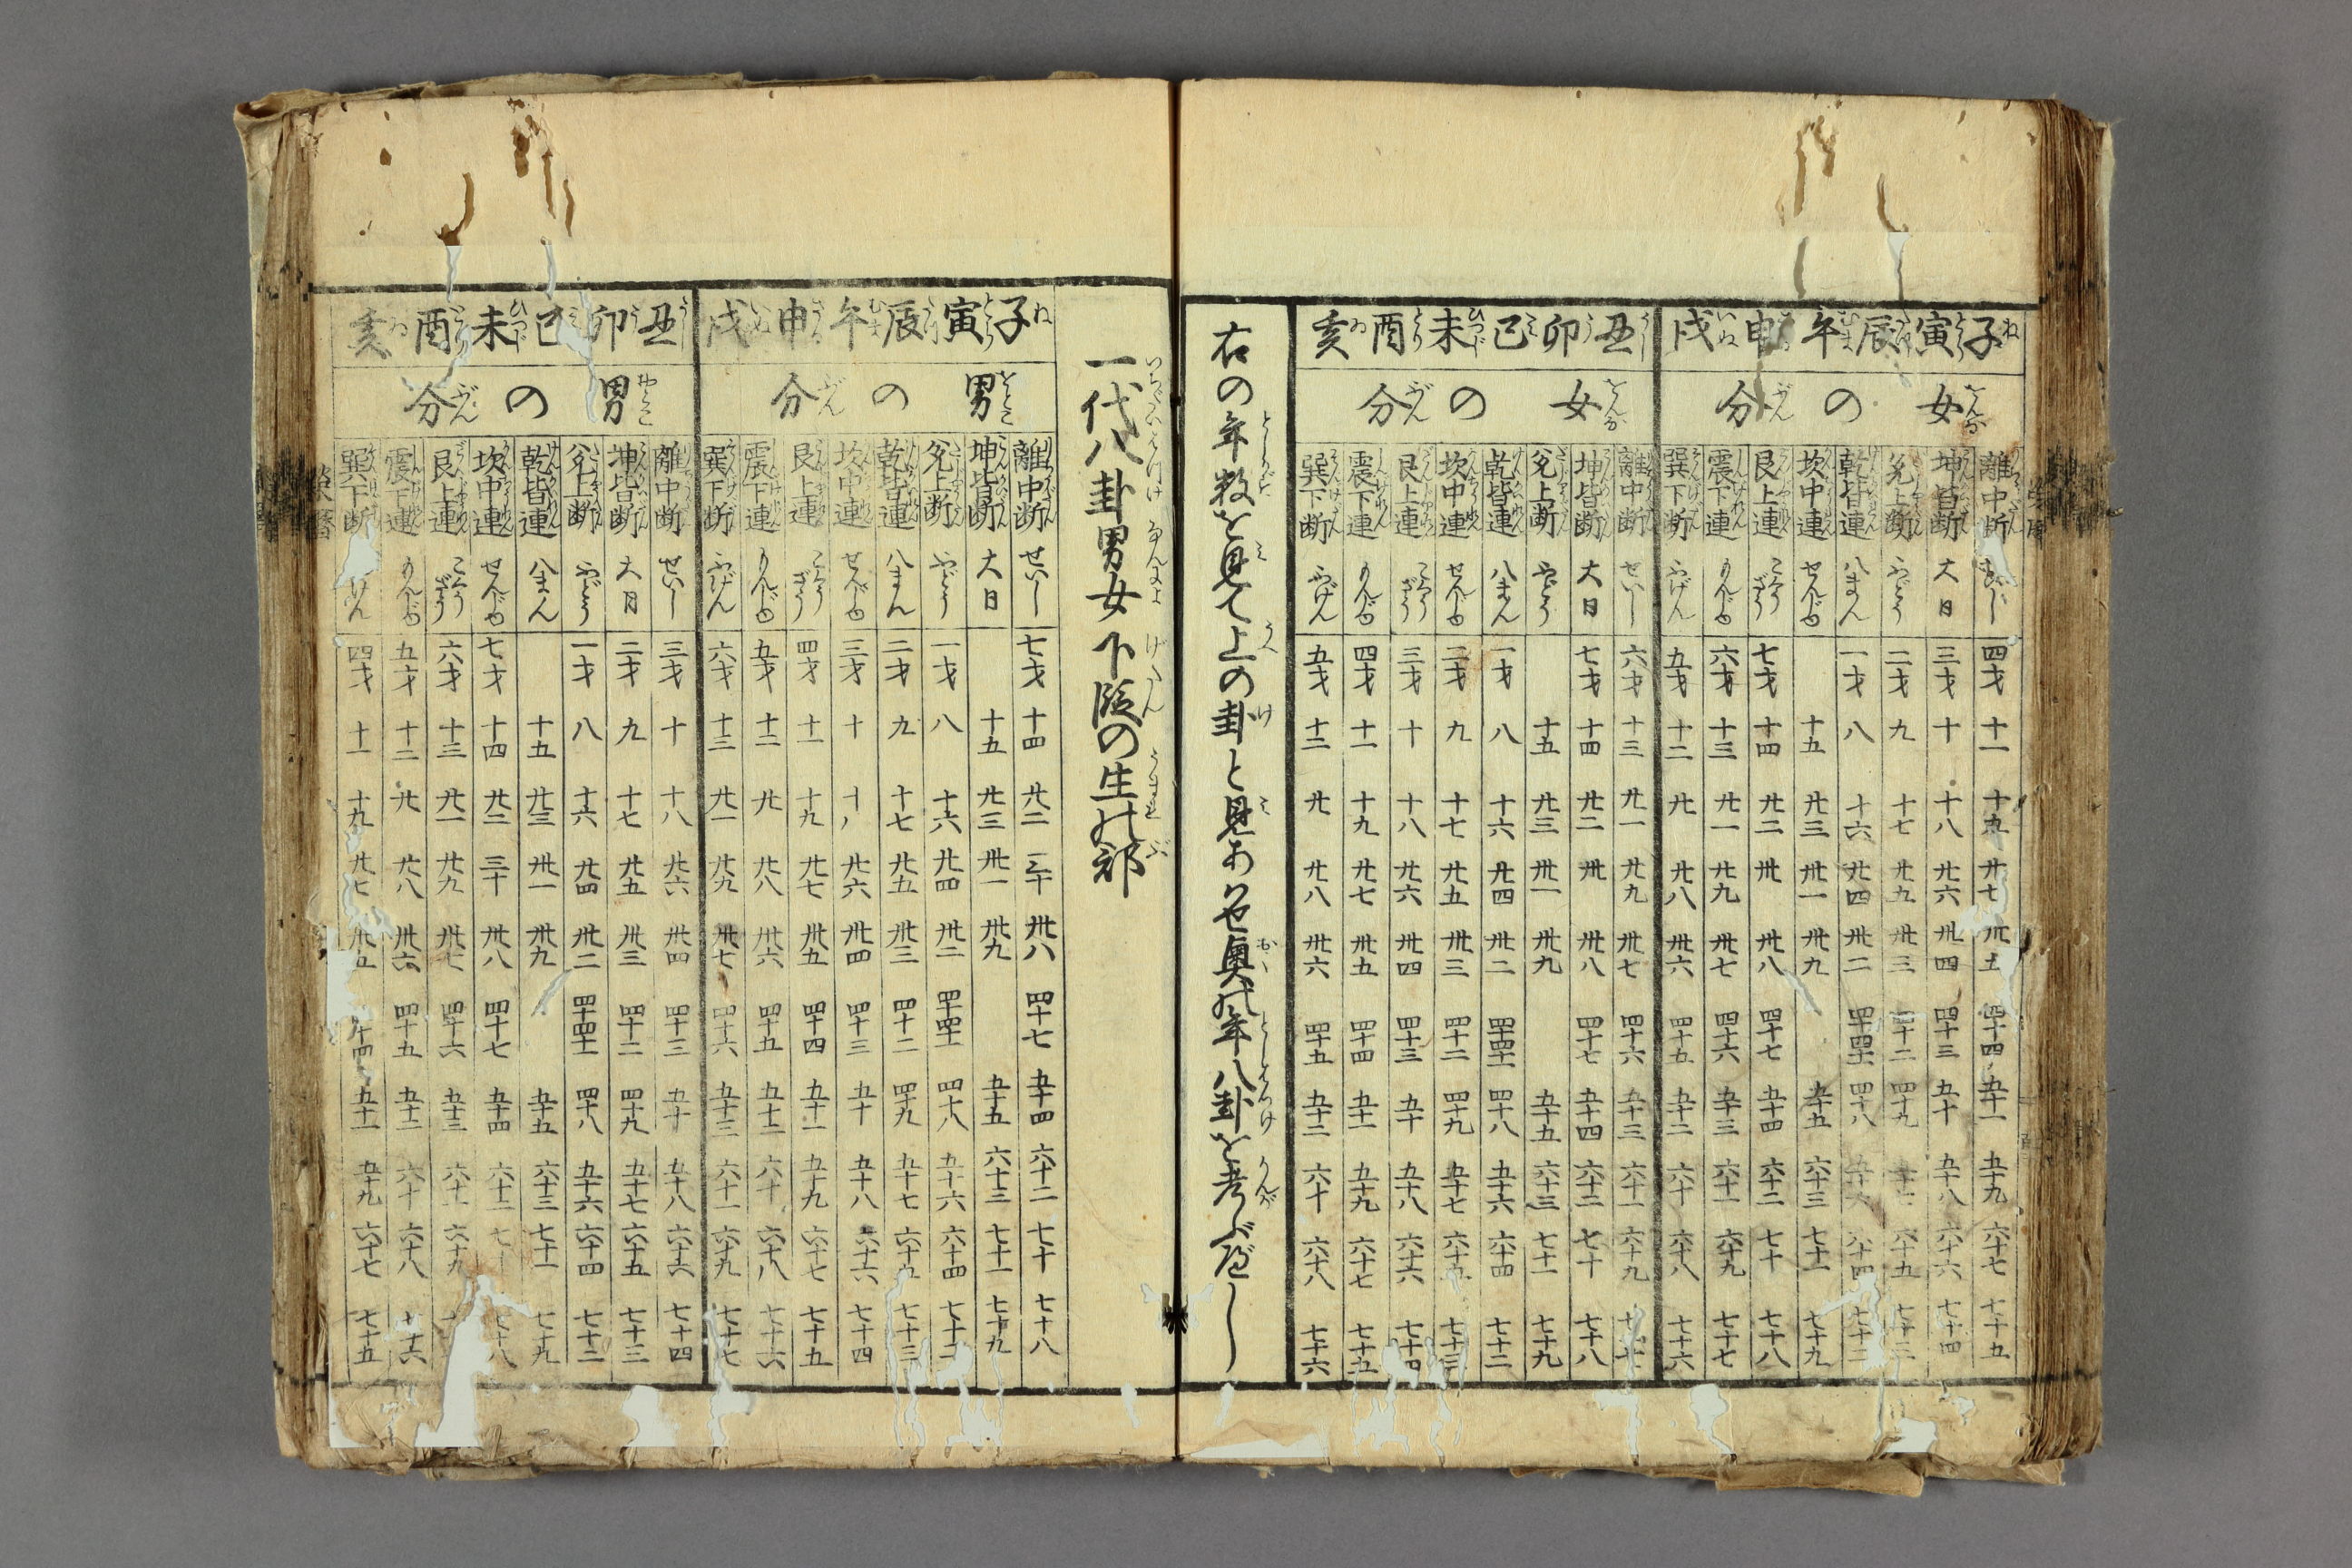 子寅辰午申戌
女の分
離中断 せいし 四才 十一 十九 廿七 卅五 四十四 五十一 五十九 六十七 七十五
坤皆断 大日 三才 十 十八 廿六 卅四 四十三 五十 五十八 六十六 七十四
兌上断 ふどう 二才 九 十七 廿五 卅三 四十二 四十九 六十五
乾皆連 八まん 一才 八 十六 廿四 卅二 四十 四十一 四十八 六十四
坎中連 せんじゆ 十五 廿三 卅一 卅九 五十五 六十三 七十一 七十九
艮上連 こくうざう 七才 十四 廿二 卅 卅八 四十七 五十四 六十二 七十 七十八
震下連 もんじゆ 六才 十三 廿一 廿九 卅七 四十六 五十三 六十一 六十九 七十七
巽下断 ふげん 五才 十二 廿 廿八 卅六 四十五 五十二 六十 六十八 七十六
丑卯巳未酉亥
女の分
離中断 せいし 六才 十三 廿一 廿九 卅七 四十六 五十三 六十一 六十九
坤皆断 大日 七才 十四 廿二 卅 卅八 四十七 五十四 六十二 七十 七十八
兌上断 ふどう 十五 廿三 卅一 卅九 五十五 六十三 七十一 七十九
乾皆連 八まん 一才 八 十六 廿四 卅二 四十 四十一 四十八 五十六 六十四 七十二
坎中連 せんじゆ 二才 九 十七 廿五 卅三 四十二 四十九 五十七 六十五 七十三
艮上連 こくうざう 三才 十 十八 廿六 卅四 四十三 五十 五十八 六十六 七十四
震下連 もんじゆ 四才 十一 十九 廿七 卅五 四十四 五十一 五十九 六十七 七十五
巽下断 ふげん 五才 十二 廿 廿八 卅六 四十五 五十二 六十 六十八 七十六
右の年数を見て上の卦と見あわせ奥の年八卦を考ふべし
一代八卦男女下段の生れ部
子寅辰午申戌
男の分
離中断 せいし 七才 十四 廿二 三十 卅八 四十七 五十四 六十二 七十 七十八
坤皆断 大日 十五 廿三 卅一 卅九 五十五 六十三 七十一 七十九
兌上断 ふどう 一才 八 十六 廿四 卅二 四十 四十一 四十八 五十六 六十四 七十二
乾皆連 八まん 二才 九 十七 廿五 卅三 四十二 四十九 五十七 六十五 七十三
坎中連 せんじゆ 三才 十 廿六 卅四 四十三 五十 五十八 六十六 七十四
艮上連 こくうざう 四才 十一 十九 廿七 卅五 四十四 五十一 五十九 六十七 七十五
震下連 もんじゆ 五才 十二 廿 廿八 卅六 四十五 五十二 六十 六十八 七十六
巽下断 ふげん 六才 十三 廿一 廿九 卅七 四十六 五十三 六十一 六十九 七十七
丑卯巳未酉亥
男の分
離中断 せいし 三才 十 十八 廿六 卅四 四十三 五十 五十八 六十六 七十四
坤皆断 大日 二才 九 十七 廿五 卅三 四十二 四十九 五十七 六十五 七十三
兌上断 ふどう 一才 八 十六 廿四 卅二 四十 四十一 四十八 五十六 六十四 七十二
乾皆連 八まん 十五 廿三 卅一 卅九 五十五 六十三 七十一 七十九
坎中連 せんじゆ 七才 十四 廿二 三十 卅八 四十七 五十四 六十二 七十八
艮上連 こくうざう 六才 十三 廿一 廿九 卅七 四十六 五十三 六十一 六十九
震下連 もんじゆ 五才 十二 廿 廿八 卅六 四十五 五十二 六十 六十八 七十六
巽下断 四才 十一 十九 廿七 卅五 四十四 五十一 五十九 六十七 七十五